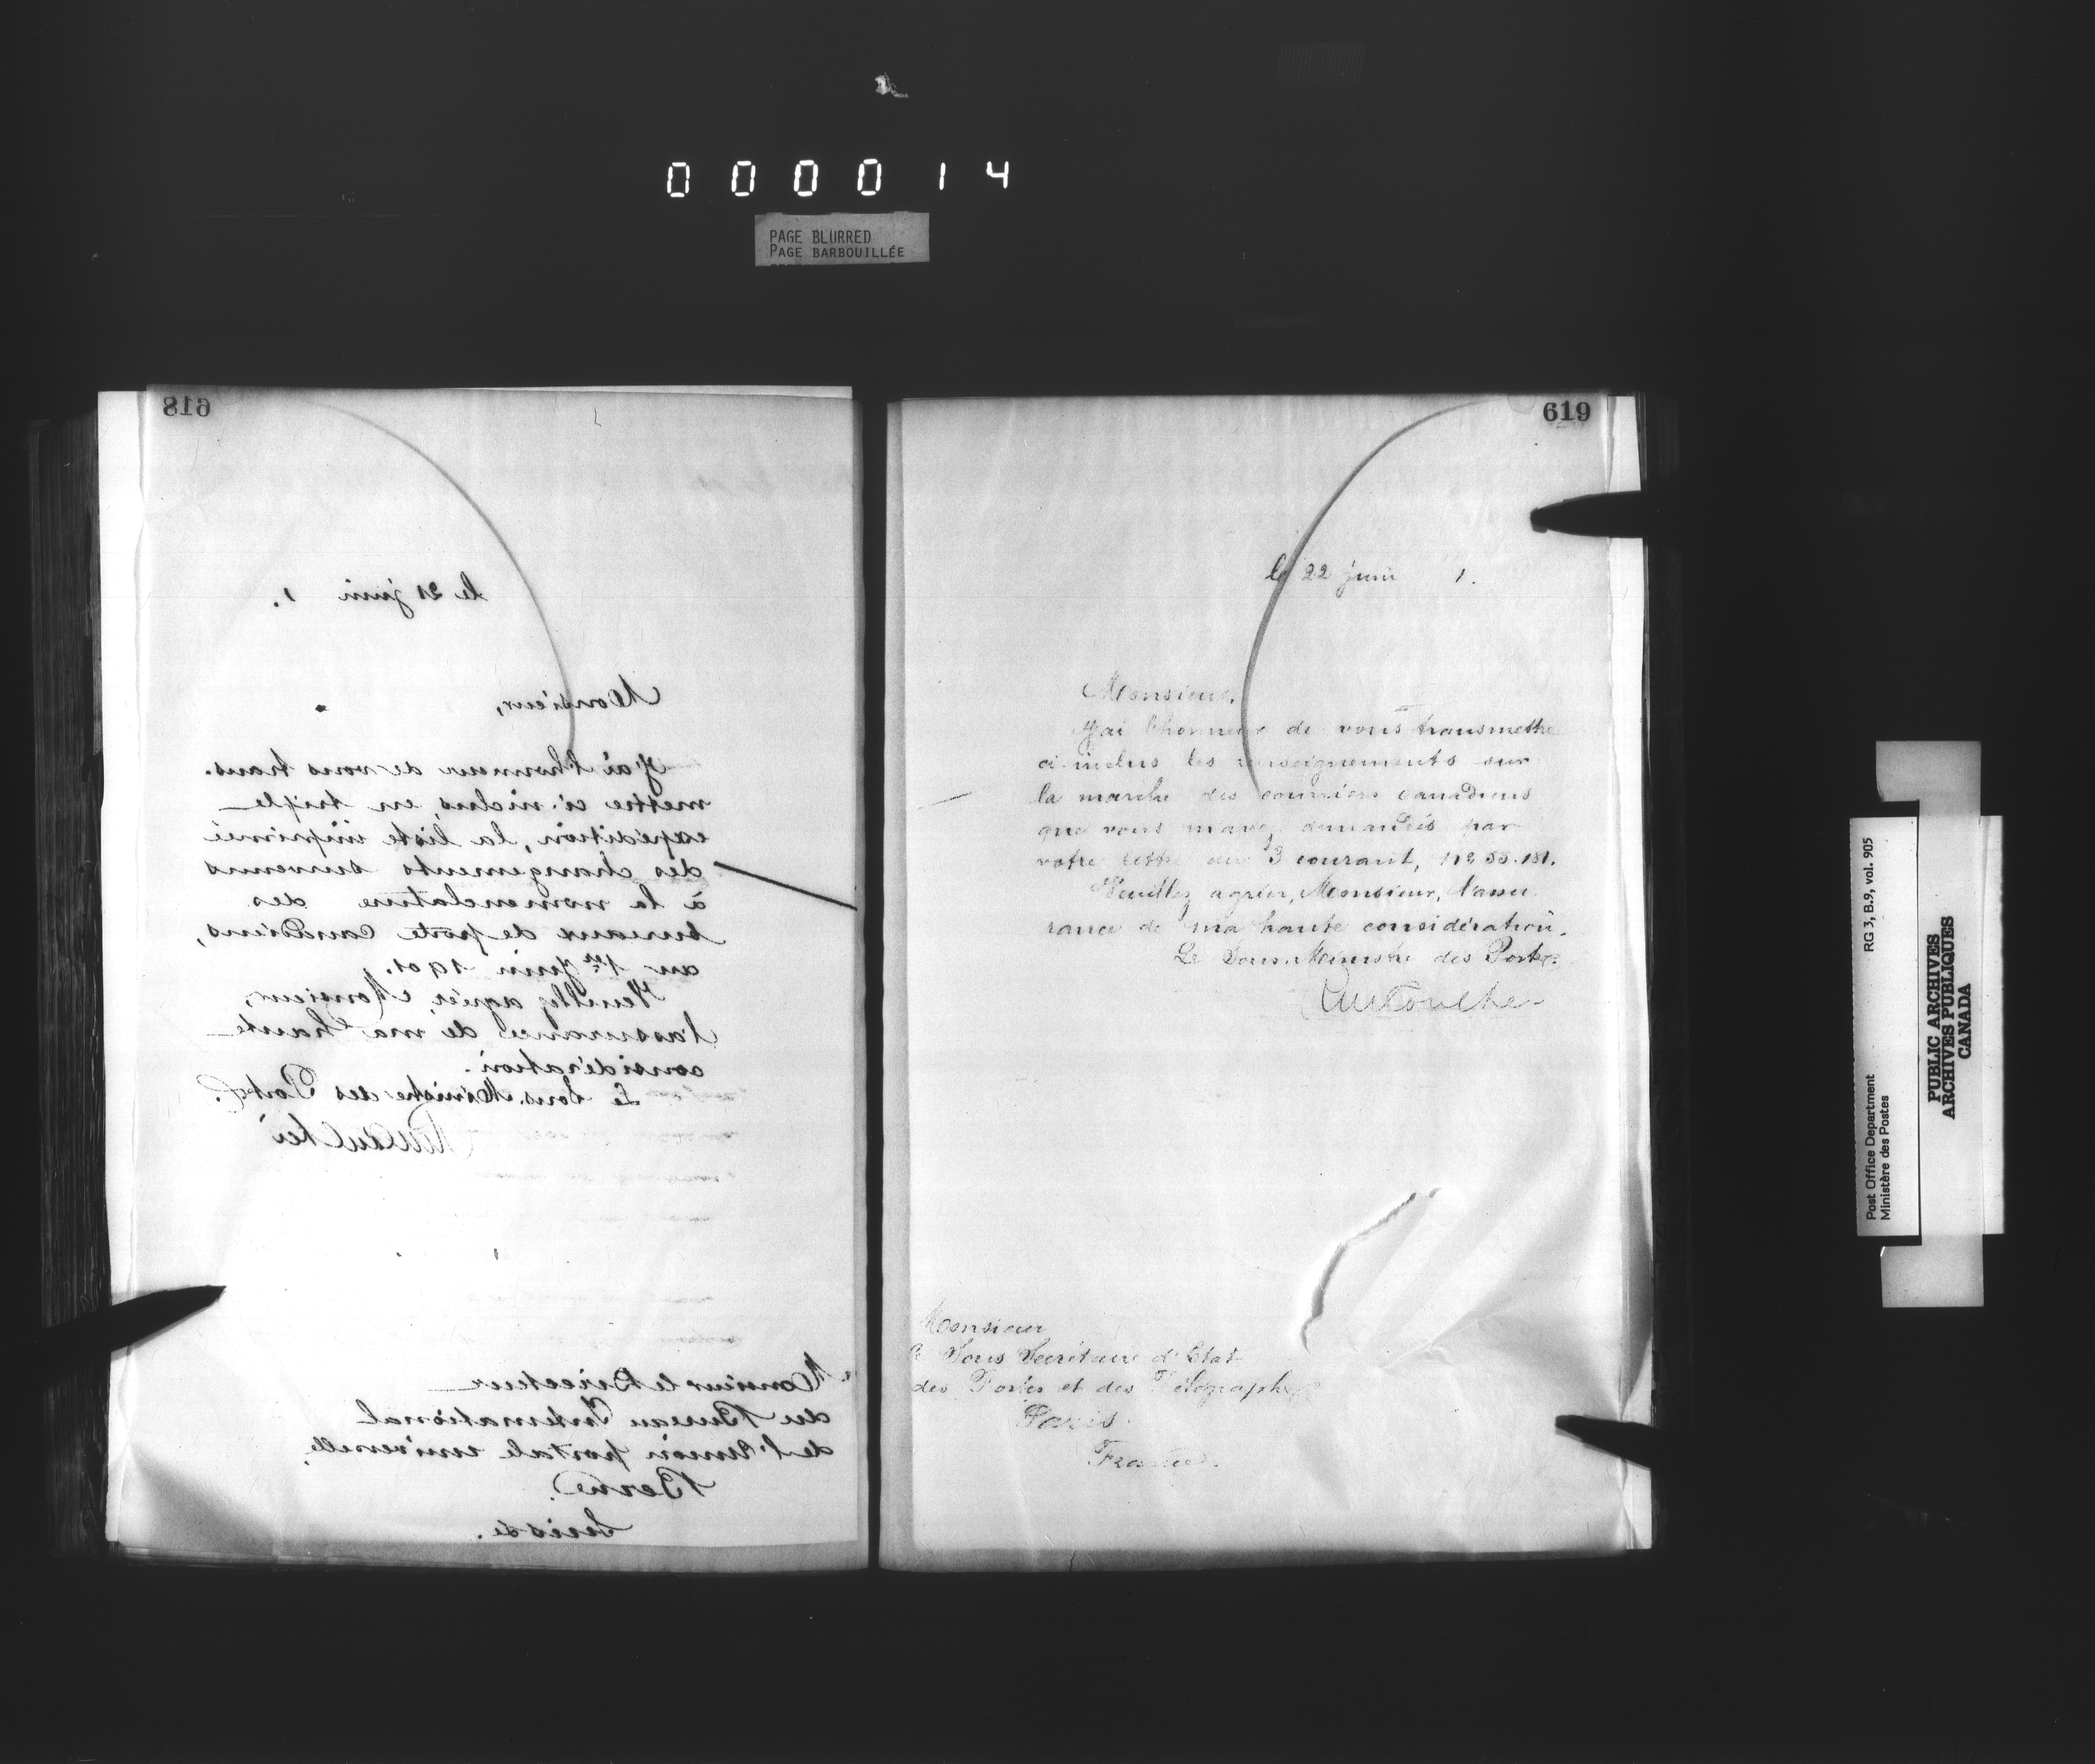 000014
PAGE BLURRED
PAGE BARBOUILLÉE
618
le 21 juin 1.
Monsieur,
J'ai l'honneur de vous trans-
mettre ci-inclus, en triple
expédition, la liste imprimée
des changements survenus
à la nomenclature des
bureaux de poste canadiens,
au 1er juin 1901.
Veuillez agréer, Monsieur,
l'assurance de ma haute
considération.
Le Sous-Ministre des Postes.
Monsieur le Directeur
du Bureau International
de l'Union postale universelle,
Berne.
Suisse.
619
le 22 juin 1.
Monsieur,
J'ai l'honneur de vous transmettre
ci-inclus les renseignements sur
la marche des courriers canadiens
que vous m'avez demandés par
votre lettre du 3 courant,
Veuillez agréer, Monsieur, l'assu
rance de ma haute considération.
Le Sous-Ministre des Postes.
Monsieur
le Sous Secrétaire d'Etat
des Postes et des Télégraphes
Paris.
France.
Post Office Department
Ministère des Postes
RG 3, B.9, vol. 905
PUBLIC ARCHIVES
ARCHIVES PUBLIQUES
CANADA